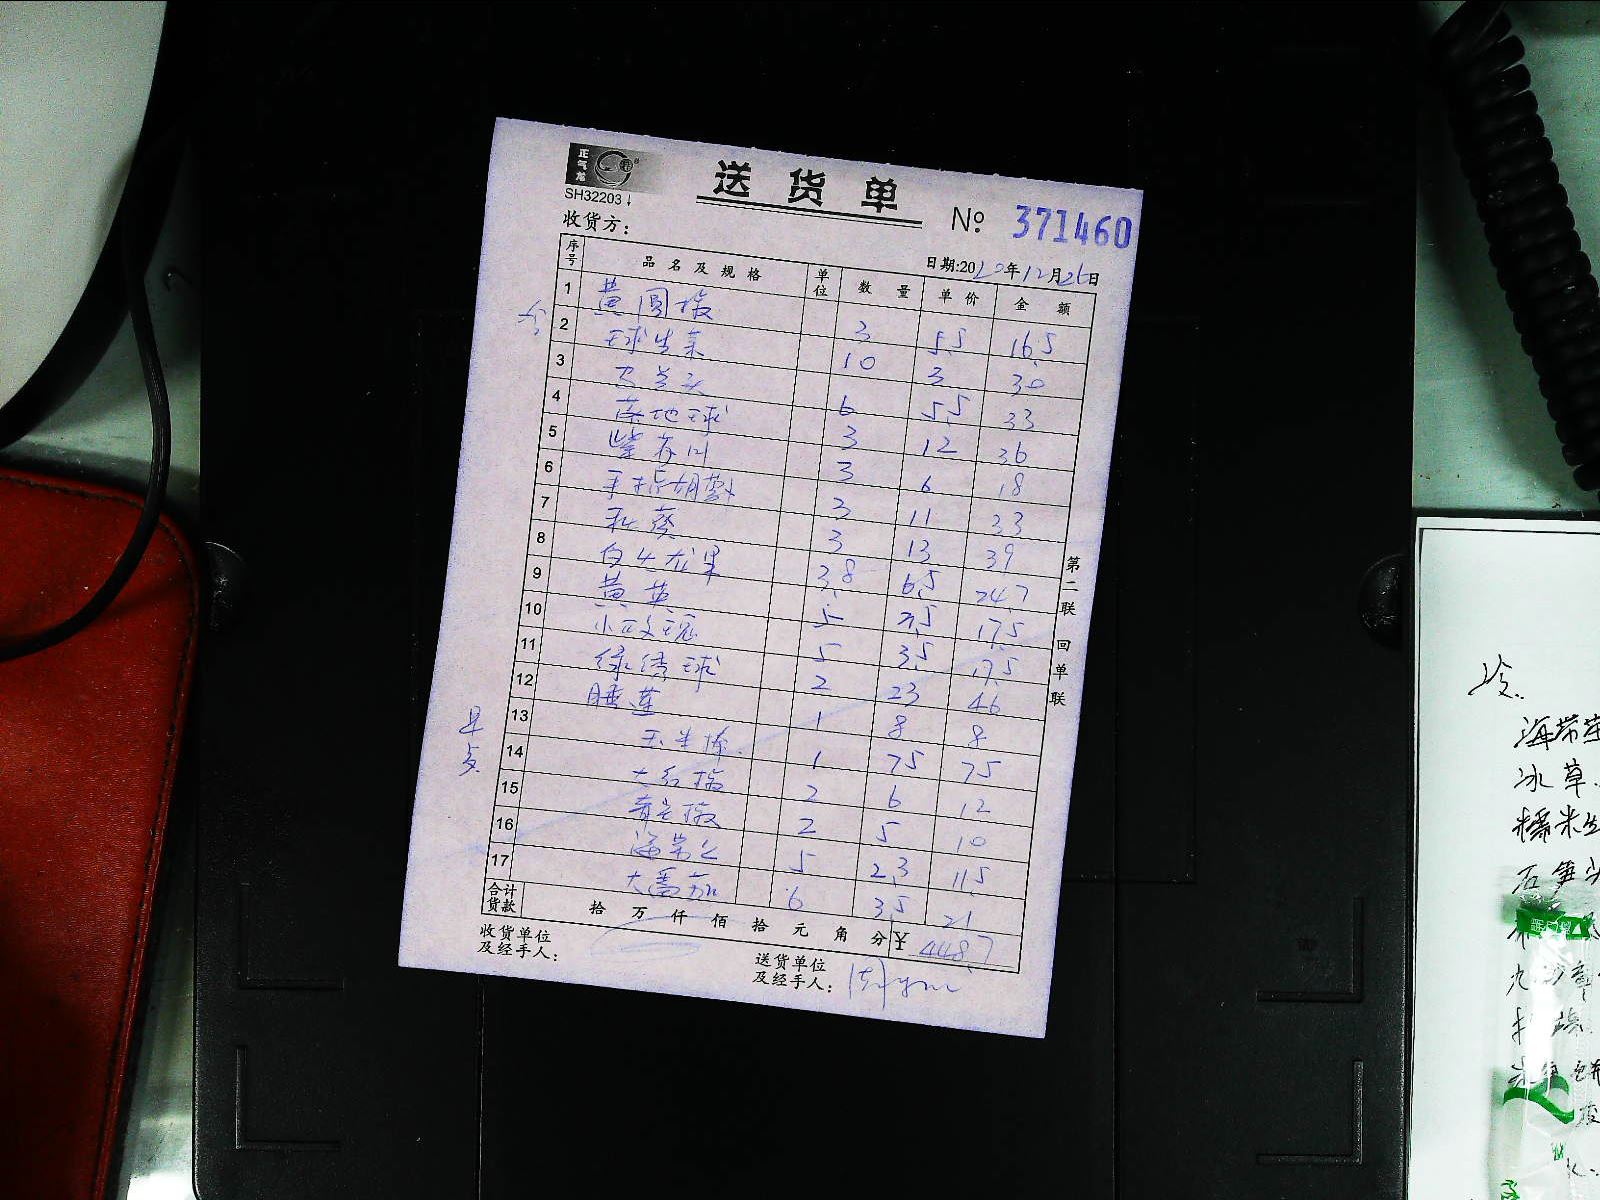 正气龙
SH32203↓
送货单
№ 371460
收货方:
日期:2020年12月26日
序号 品名及规格 单位 数量 单价 金额
冷
1 黄圆椒 3 5.5 16.5
2 球生菜 10 3 30
3 马兰头 6 5.5 33
4 落地球 3 12 36
5 紫苏叶 3 6 18
6 手指胡萝卜 3 11 33
7 秋葵 3 13 39
8 白火龙果 3.8 6.5 24.7
9 黄英 5 3.5 17.5
10 小玫瑰 5 3.5 17.5
11 绿绣球 2 23 46
12 睡莲 1 8 8
早点
13 玉米棒 1 75 75
14 大红椒 2 6 12
15 青尖椒 2 5 10
16 海带丝 5 2.3 11.5
17 大番茄 6 3.5 21
合计货款 拾 万 仟 佰 拾 元 角 分 ¥ 448.7
收货单位及经手人:
送货单位及经手人:
第二联 回单联
冷.
海带芽
冰草.
糯米
石笋